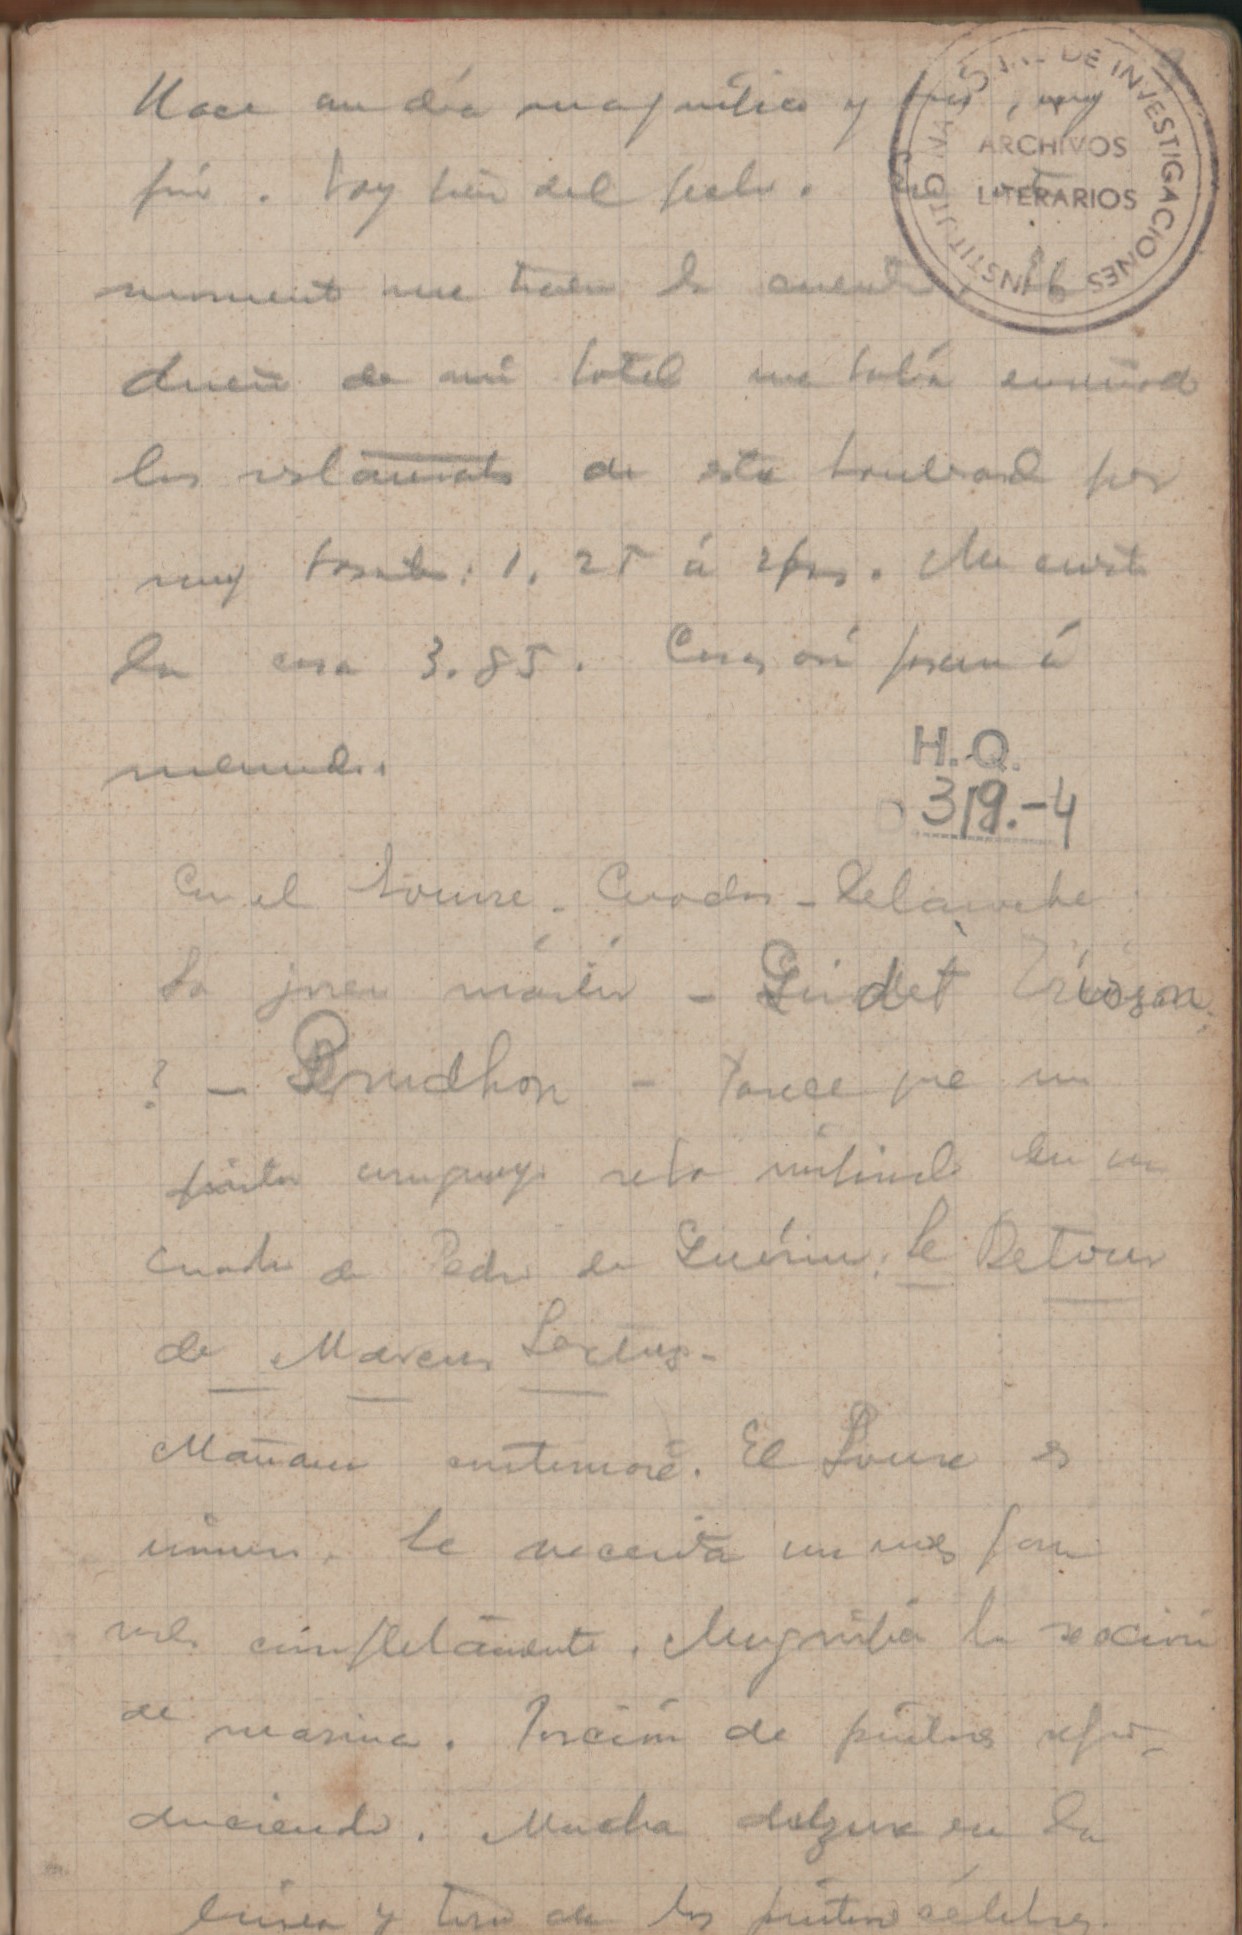 Hace un día magnífico y frío, muy
frío. Voy bien del pecho. En este
momento me traen la cuenta. El
dueño de mi hotel me había enseñado
los restaurants de este boulevard por
muy baratos: 1.25 á 2 frs. Me cuesta
la cosa 3.85. Cosas así pasan á
menudo.
H.Q.
319.-4
En el Louvre - Cuadros - Delaroche
La joven mártir - Girodet Trioson
? - Prudhon - Parece que un
pintor uruguayo se ha en un
cuadro de Pedro de Guérin: Le Retour
de Marcus Sextus -
Mañana continuaré. El Louvre es
inmenso. Se necesita un mes para
verlo completamente. Magnífica la sección
de marina. Porción de pintores repro-
duciendo. Mucha en la
línea y tono de los pintores célebres.
INSTITUTO NACIONAL DE INVESTIGACIONES
ARCHIVOS
LITERARIOS